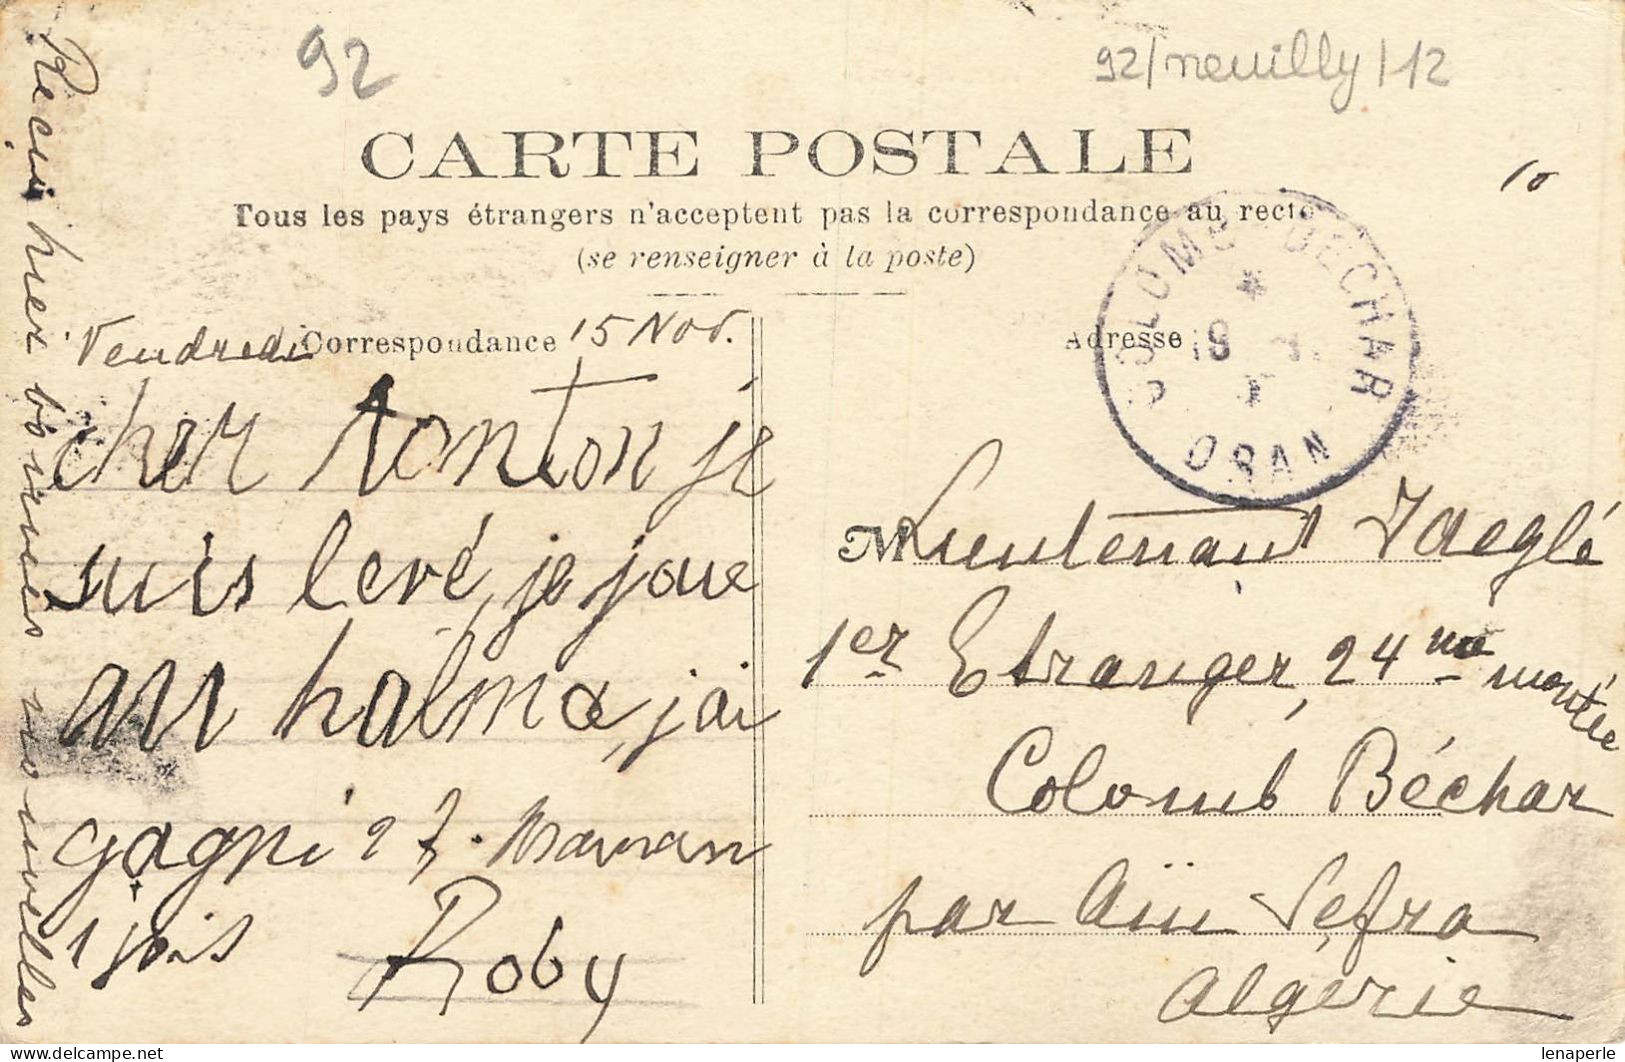 92
92/neuilly/12
CARTE POSTALE
10
Tous les pays étrangers n'acceptent pas la correspondance au recto
(se renseigner à la poste)
COLOMB-BECHAR
ORAN
Vendredi Correspondance 15 Nov.
Adresse
cher tonton je
suis levé, je joue
au halma, j'ai
gagné 2 f. Maman
1 fois
Roby
Reçu hier bonnes nouvelles
M Lieutenant Jaeglé
1er Etranger, 24me montée
Colomb Béchar
par Aïn Sefra
Algérie
lenaperle